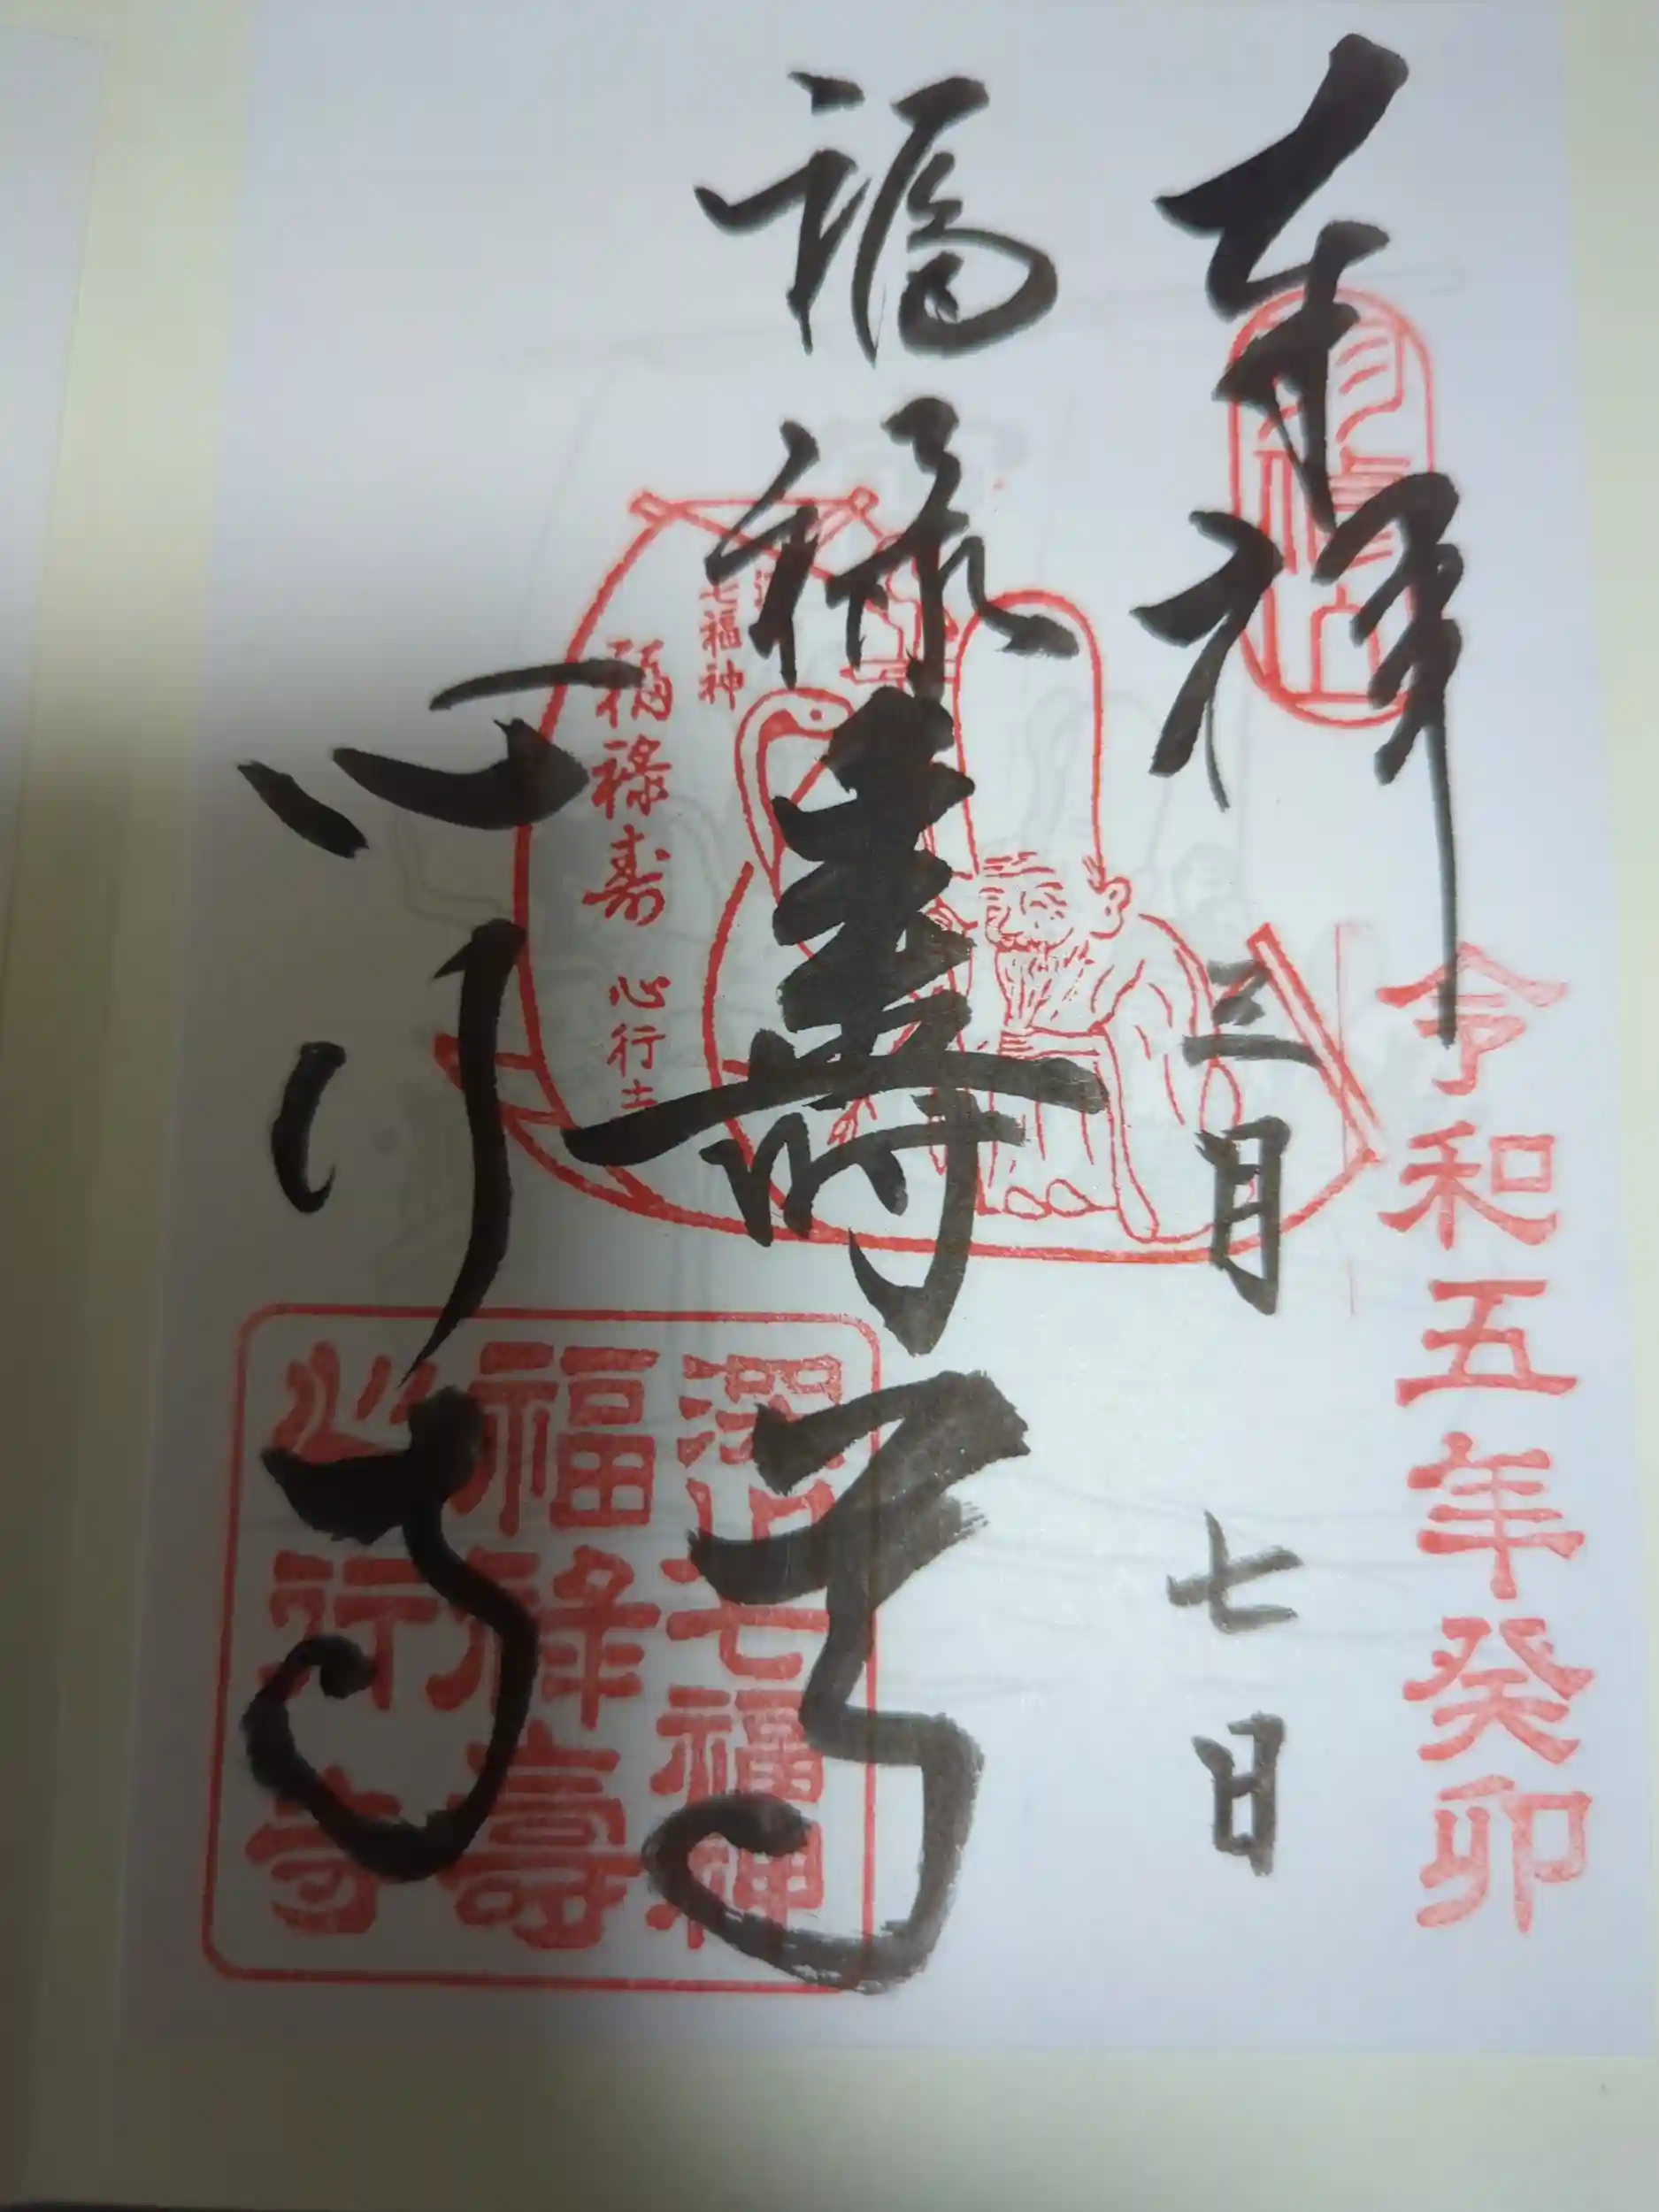 奉拝
令和五年癸卯
三月七日
福禄寿尊
七福神
福禄寿 心行寺
心行寺
深川七福神
福禄壽
心行寺